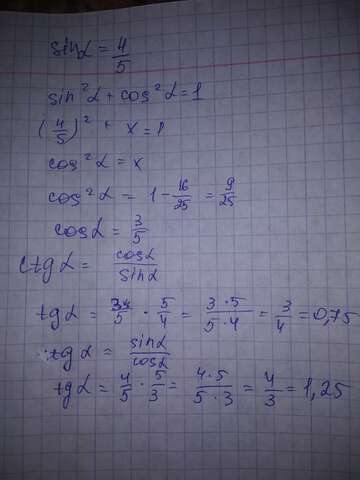 sinα = 4/5
sin²α + cos²α = 1
(4/5)² + x = 1
cos²α = x
cos²α = 1 - 16/25 = 9/25
cosα = 3/5
ctgα = cosα/sinα
tgα = 3/5 · 5/4 = 3·5/5·4 = 3/4 = 0,75
tgα = sinα/cosα
tgα = 4/5 · 5/3 = 4·5/5·3 = 4/3 = 1,25